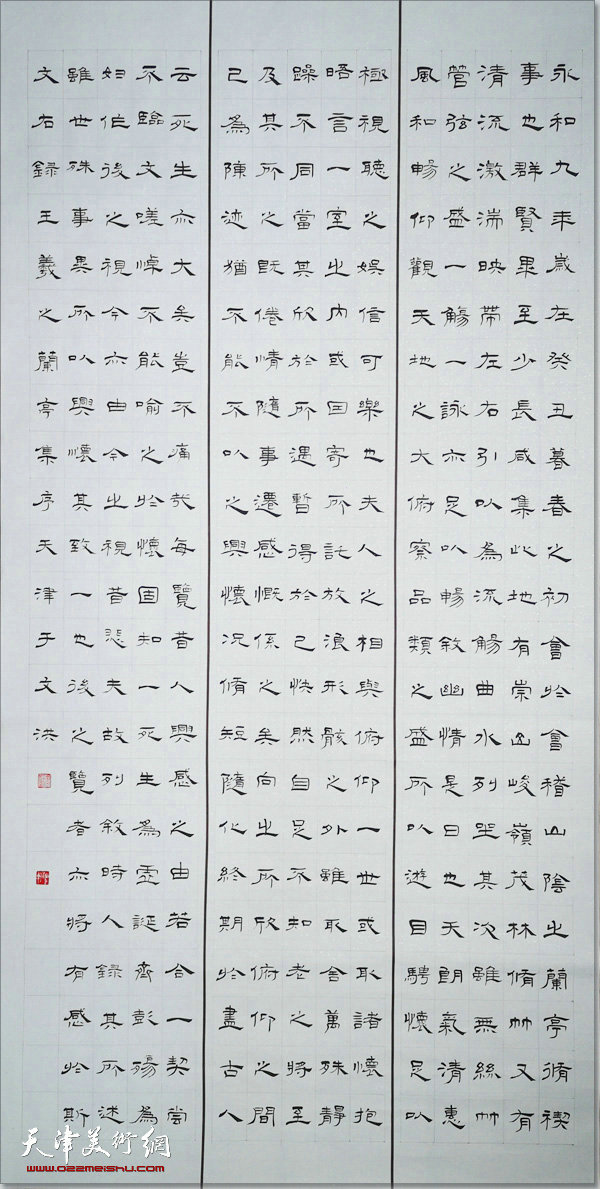 永和九年歲在癸丑暮春之初會於會稽山陰之蘭亭脩禊
事也群賢畢至少長咸集此地有崇山峻嶺茂林脩竹又有
清流激湍映帶左右引以為流觴曲水列坐其次雖無絲竹
管弦之盛一觴一詠亦足以暢敘幽情是日也天朗氣清惠
風和暢仰觀天地之大俯察品類之盛所以遊目騁懷足以
極視聽之娛信可樂也夫人之相與俯仰一世或取諸懷抱
晤言一室之內或因寄所託放浪形骸之外雖取舍萬殊靜
躁不同當其欣於所遇暫得於己快然自足不知老之將至
及其所之既倦情隨事遷感慨係之矣向之所欣俯仰之間
已為陳迹猶不能不以之興懷況脩短隨化終期於盡古人
云死生亦大矣豈不痛哉每覽昔人興感之由若合一契嘗
不臨文嗟悼不能喻之於懷固知一死生為虛誕齊彭殤為
妄作後之視今亦由今之視昔悲夫故列敘時人錄其所述
雖世殊事異所以興懷其致一也後之覽者亦將有感於斯
文右錄王羲之蘭亭集序天津于文洪
天津美術網
www.022meishu.com